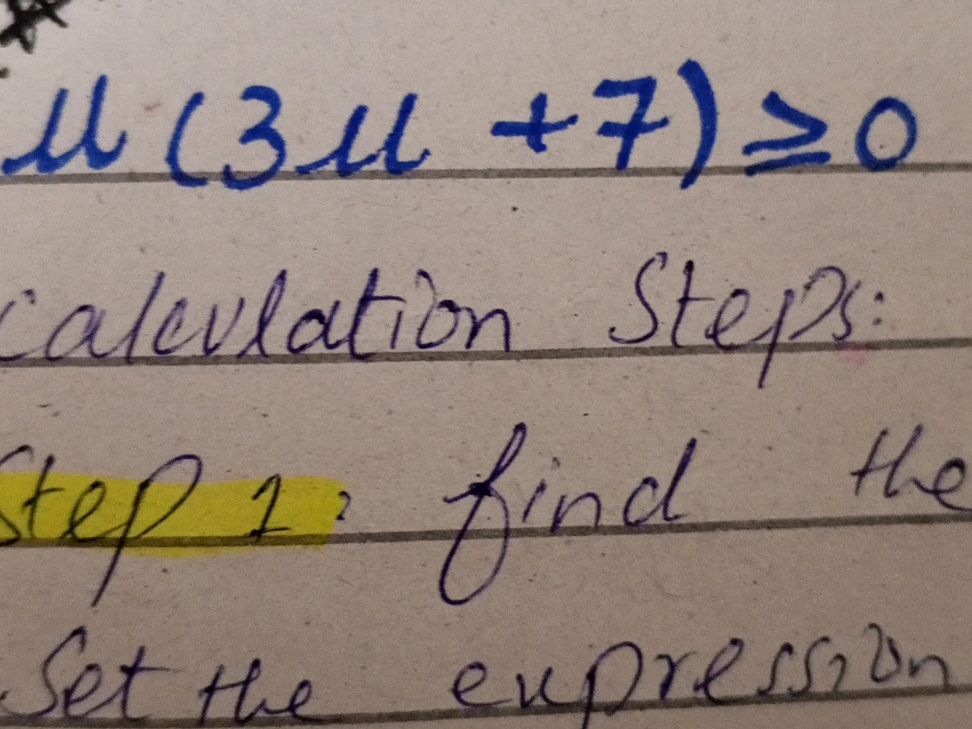 x(3x+7)≥0
Calculation Steps:
Step 1: find the
Set the expression